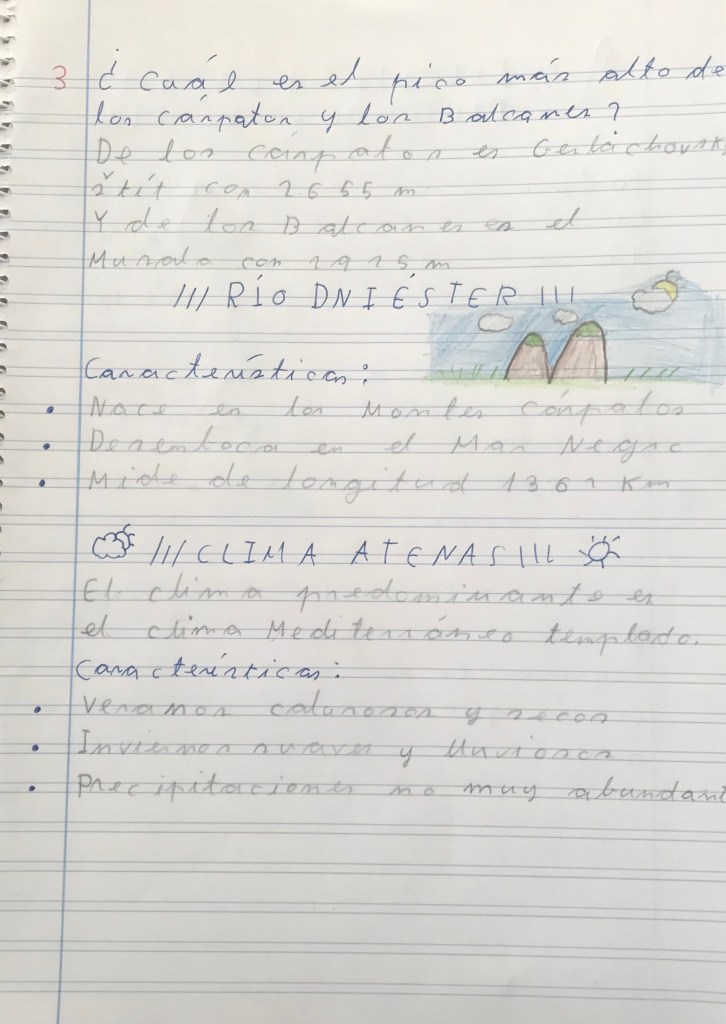 3 ¿Cuál es el pico más alto de
los Cárpatos y los Balcanes?
De los Cárpatos es Gerlachovsk
štít con 2.655 m
Y de los Balcanes es el
Musala con 2925m
/// RÍO DNIÉSTER \\\
Características:
• Nace en los Montes Cárpatos
• Desemboca en el Mar Negro
• Mide de longitud 1362 Km
/// CLIMA ATENAS \\\
El clima predominante es
el clima Mediterráneo templado.
Características:
• Veranos calurosos y secos
• Inviernos suaves y lluviosos
• Precipitaciones no muy abundant